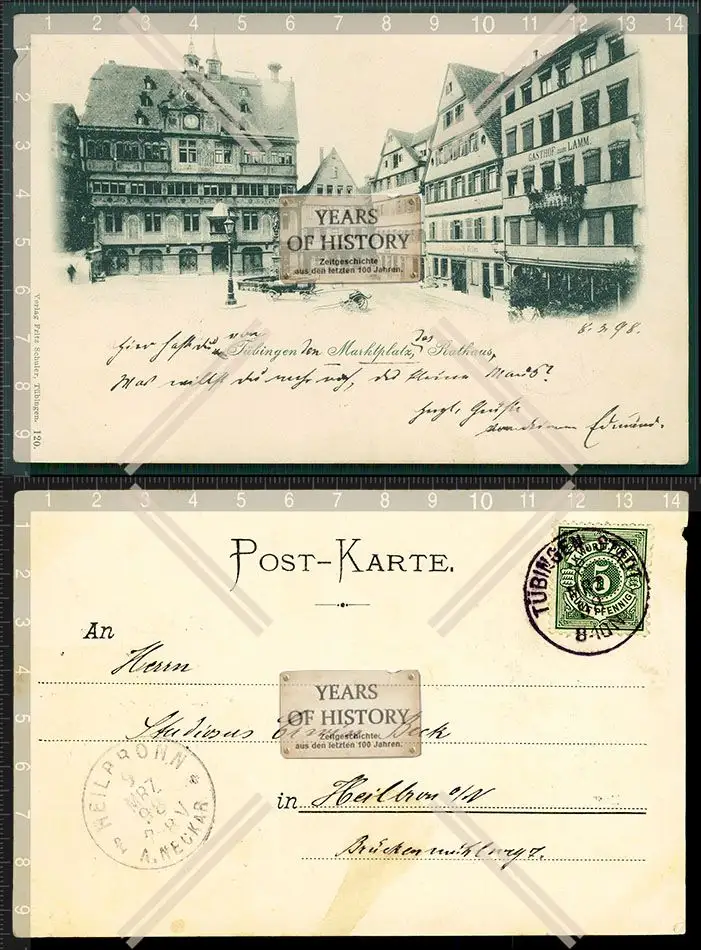 1 2 3 4 5 6 7 8 9 10 11 12 13 14
1
2
3
4
5
6
7
8
9
GASTHOF zum LAMM.
YEARS
OF HISTORY
Zeitgeschichte
aus den letzten 100 Jahren.
Verlag Fritz Schaler, Tübingen. 120.
8.3.98.
Hier hast du von
Tübingen den Marktplatz, das Rathaus,
Was willst du mehr noch, du kleine Maus?
Herzl. Grüße
von deinem Edmund.
1 2 3 4 5 6 7 8 9 10 11 12 13 14
1
2
3
4
5
6
7
8
9
POST-KARTE.
TÜBINGEN STADT
K. WÜRTT. POST
5
FÜNF PFENNIG
8-10 N
An
Herrn
YEARS
OF HISTORY
Zeitgeschichte
aus den letzten 100 Jahren.
Studiosus Erwin Beck
HEILBRONN
9
MRZ
98
A. NECKAR
2
in Heilbron a/N
Brückenmühlweg 7.